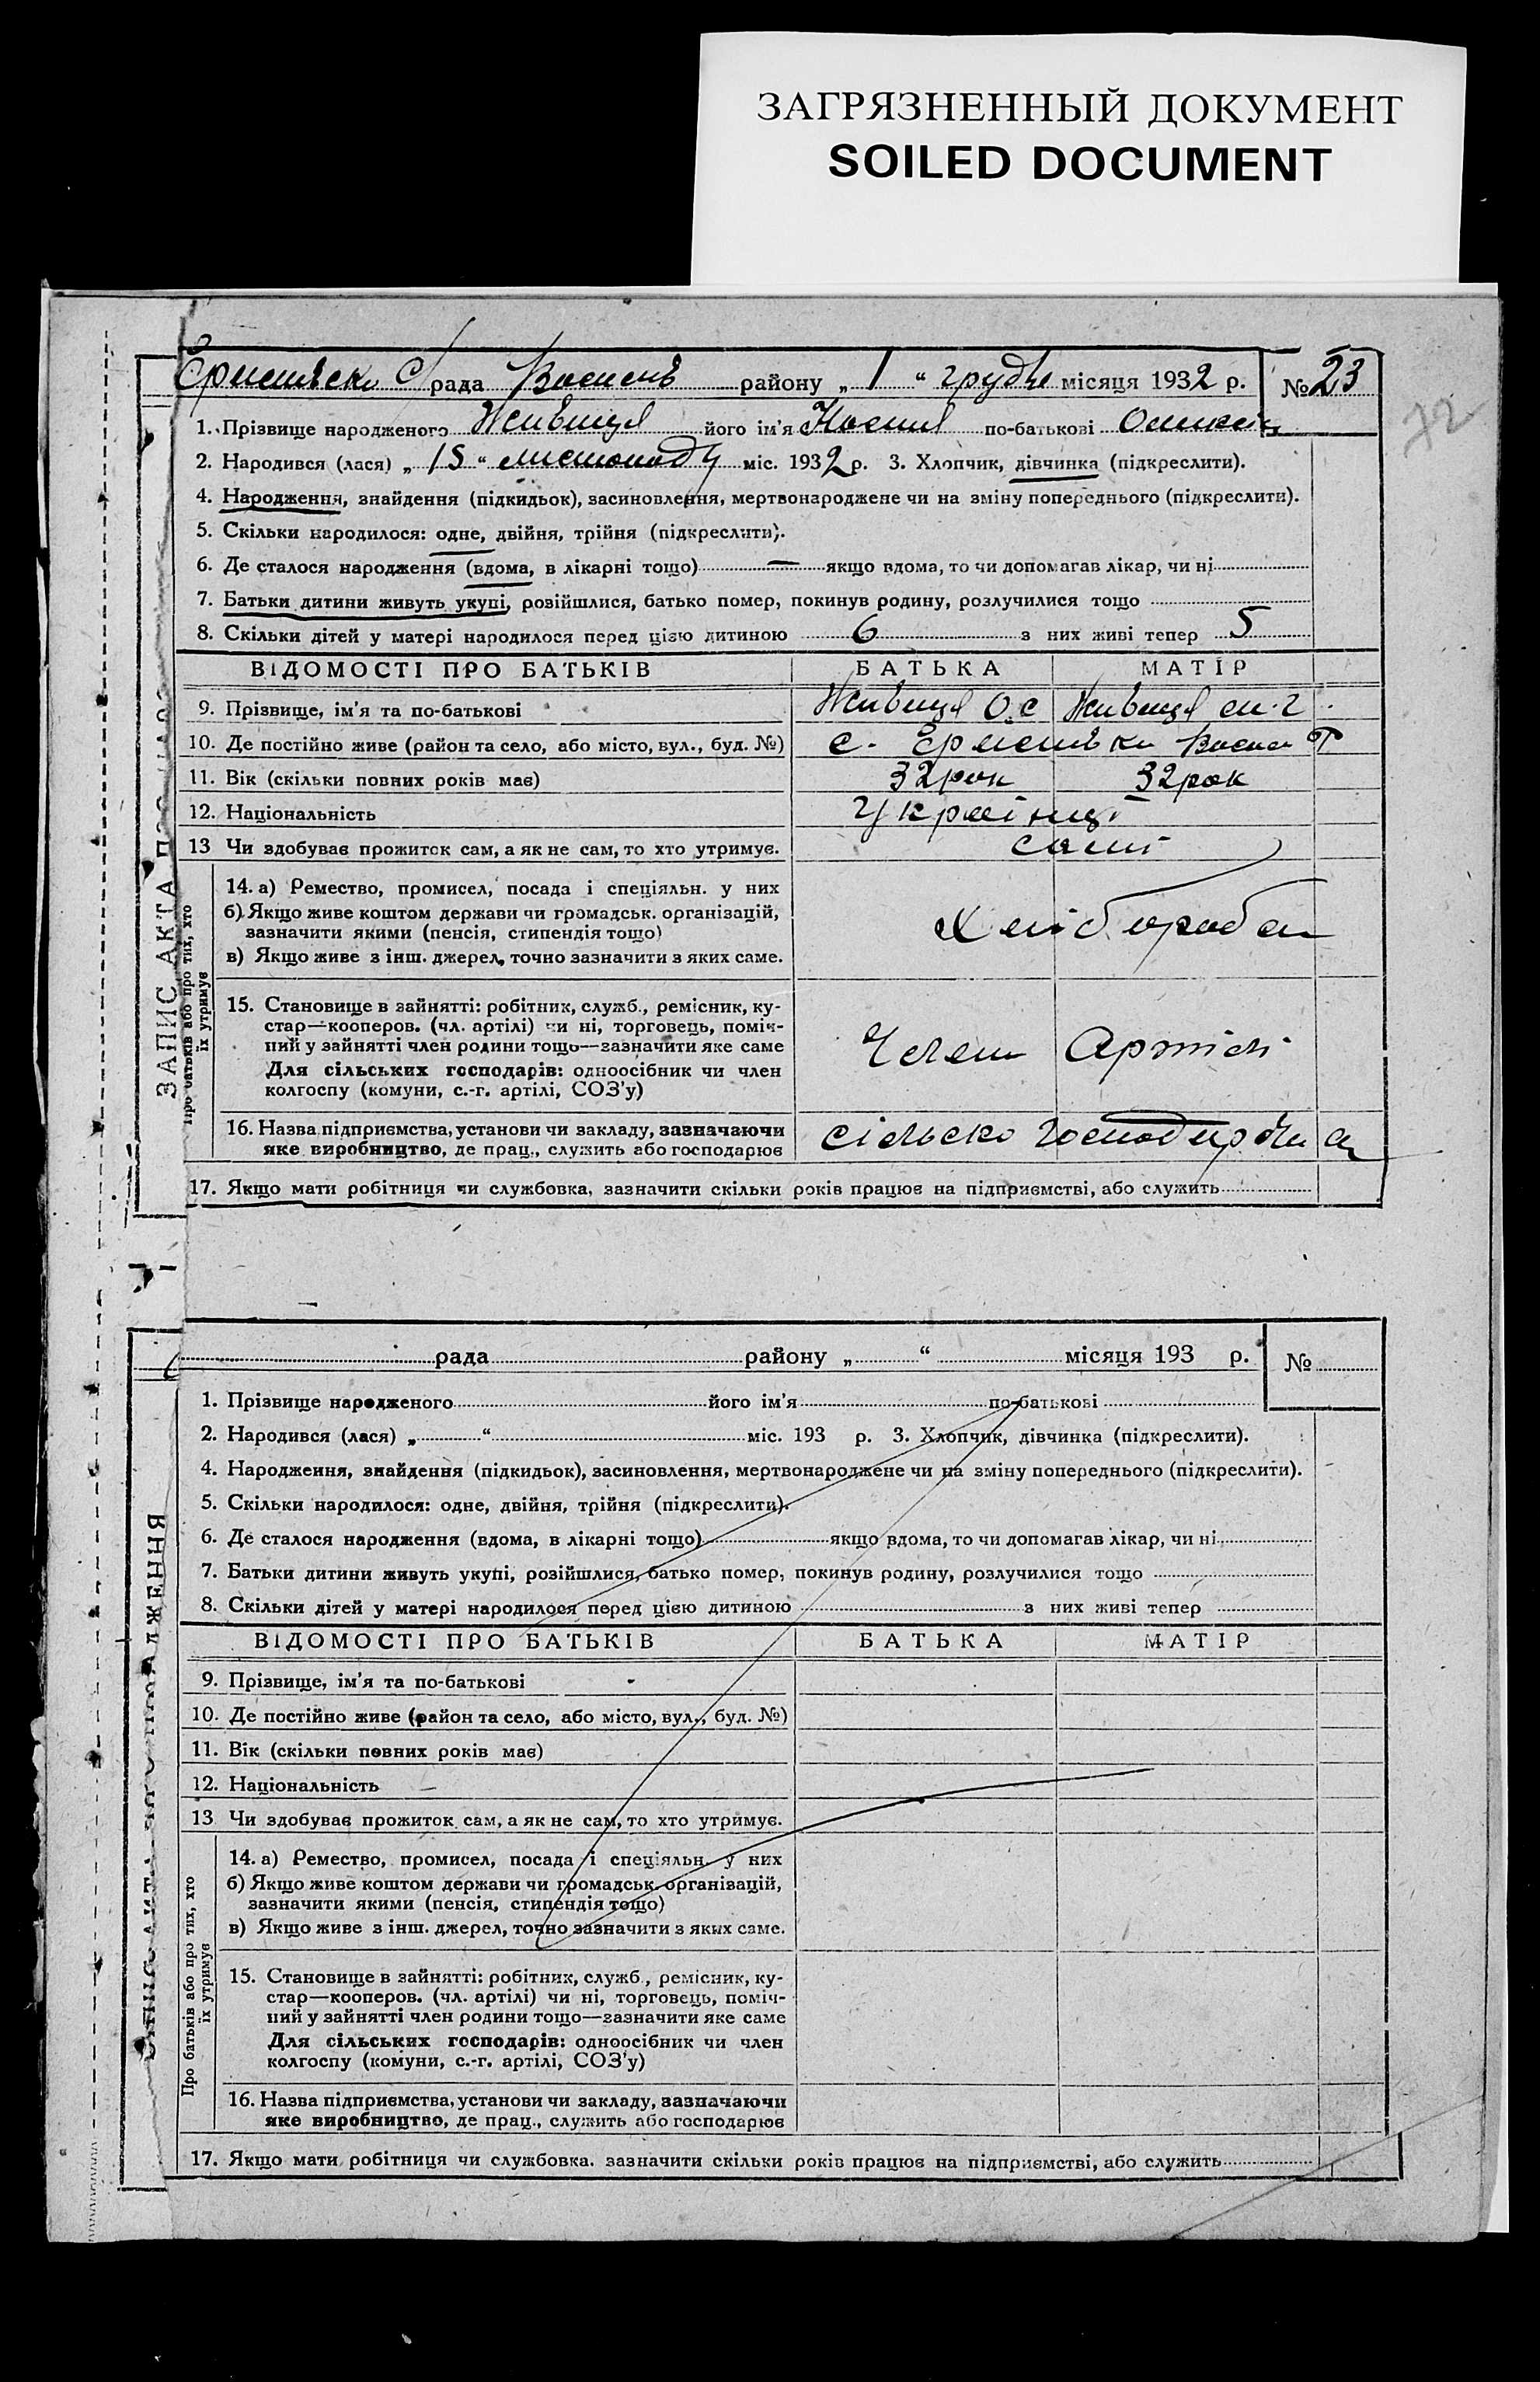 ЗАГРЯЗНЕННЫЙ ДОКУМЕНТ
SOILED DOCUMENT
рада району „ 1 “ місяця 1932 р. № 23
72
1. Прізвище народженого Живиця його ім'я по-батькові
2. Народився (лася) „ 15 “ листопаду міс. 1932 р. 3. Хлопчик, дівчинка (підкреслити).
4. Народження, знайдення (підкидьок), засиновлення, мертвонароджене чи на зміну попереднього (підкреслити).
5. Скільки народилося: одне, двійня, трійня (підкреслити).
6. Де сталося народження (вдома, в лікарні тощо) — якщо вдома, то чи допомагав лікар, чи ні
7. Батьки дитини живуть укупі, розійшлися, батько помер, покинув родину, розлучилися тощо
8. Скільки дітей у матері народилося перед цією дитиною 6 з них живі тепер 5
ВІДОМОСТІ ПРО БАТЬКІВ БАТЬКА МАТІР
9. Прізвище, ім'я та по-батькові Живиця О.С Живиця
10. Де постійно живе (район та село, або місто, вул., буд. №) с.
11. Вік (скільки повних років має) 32 рок 32 рок
12. Національність Українці
13 Чи здобуває прожиток сам, а як не сам, то хто утримує. самі
ЗАПИС АКТА
Про батьків або про тих, хто їх утримує
14. а) Ремество, промисел, посада і спеціяльн. у них
б) Якщо живе коштом держави чи громадськ. організацій,
зазначити якими (пенсія, стипендія тощо)
в) Якщо живе з інш. джерел, точно зазначити з яких саме.
Хлібороби
15. Становище в зайнятті: робітник, служб., ремісник, ку-
стар—кооперов. (чл. артілі) чи ні, торговець, поміч-
ний у зайнятті член родини тощо—зазначити яке саме
Для сільських господарів: одноосібник чи член
колгоспу (комуни, с.-г. артілі, СОЗ'у)
Члени Артілі
16. Назва підприємства, установи чи закладу, зазначаючи
яке виробництво, де прац., служить або господарює
сільсько
17. Якщо мати робітниця чи службовка, зазначити скільки років працює на підприємстві, або служить
рада району „ “ місяця 193 р. №
1. Прізвище народженого його ім'я по-батькові
2. Народився (лася) „ “ міс. 193 р. 3. Хлопчик, дівчинка (підкреслити).
4. Народження, знайдення (підкидьок), засиновлення, мертвонароджене чи на зміну попереднього (підкреслити).
5. Скільки народилося: одне, двійня, трійня (підкреслити).
6. Де сталося народження (вдома, в лікарні тощо) якщо вдома, то чи допомагав лікар, чи ні
7. Батьки дитини живуть укупі, розійшлися, батько помер, покинув родину, розлучилися тощо
8. Скільки дітей у матері народилося перед цією дитиною з них живі тепер
ВІДОМОСТІ ПРО БАТЬКІВ БАТЬКА МАТІР
9. Прізвище, ім'я та по-батькові
10. Де постійно живе (район та село, або місто, вул., буд. №)
11. Вік (скільки повних років має)
12. Національність
13 Чи здобуває прожиток сам, а як не сам, то хто утримує.
Про батьків або про тих, хто їх утримує
14. а) Ремество, промисел, посада і спеціяльн. у них
б) Якщо живе коштом держави чи громадськ. організацій,
зазначити якими (пенсія, стипендія тощо)
в) Якщо живе з інш. джерел, точно зазначити з яких саме.
15. Становище в зайнятті: робітник, служб., ремісник, ку-
стар—кооперов. (чл. артілі) чи ні, торговець, поміч-
ний у зайнятті член родини тощо—зазначити яке саме
Для сільських господарів: одноосібник чи член
колгоспу (комуни, с.-г. артілі, СОЗ'у)
16. Назва підприємства, установи чи закладу, зазначаючи
яке виробництво, де прац., служить або господарює
17. Якщо мати робітниця чи службовка. зазначити скільки років працює на підприємстві, або служить